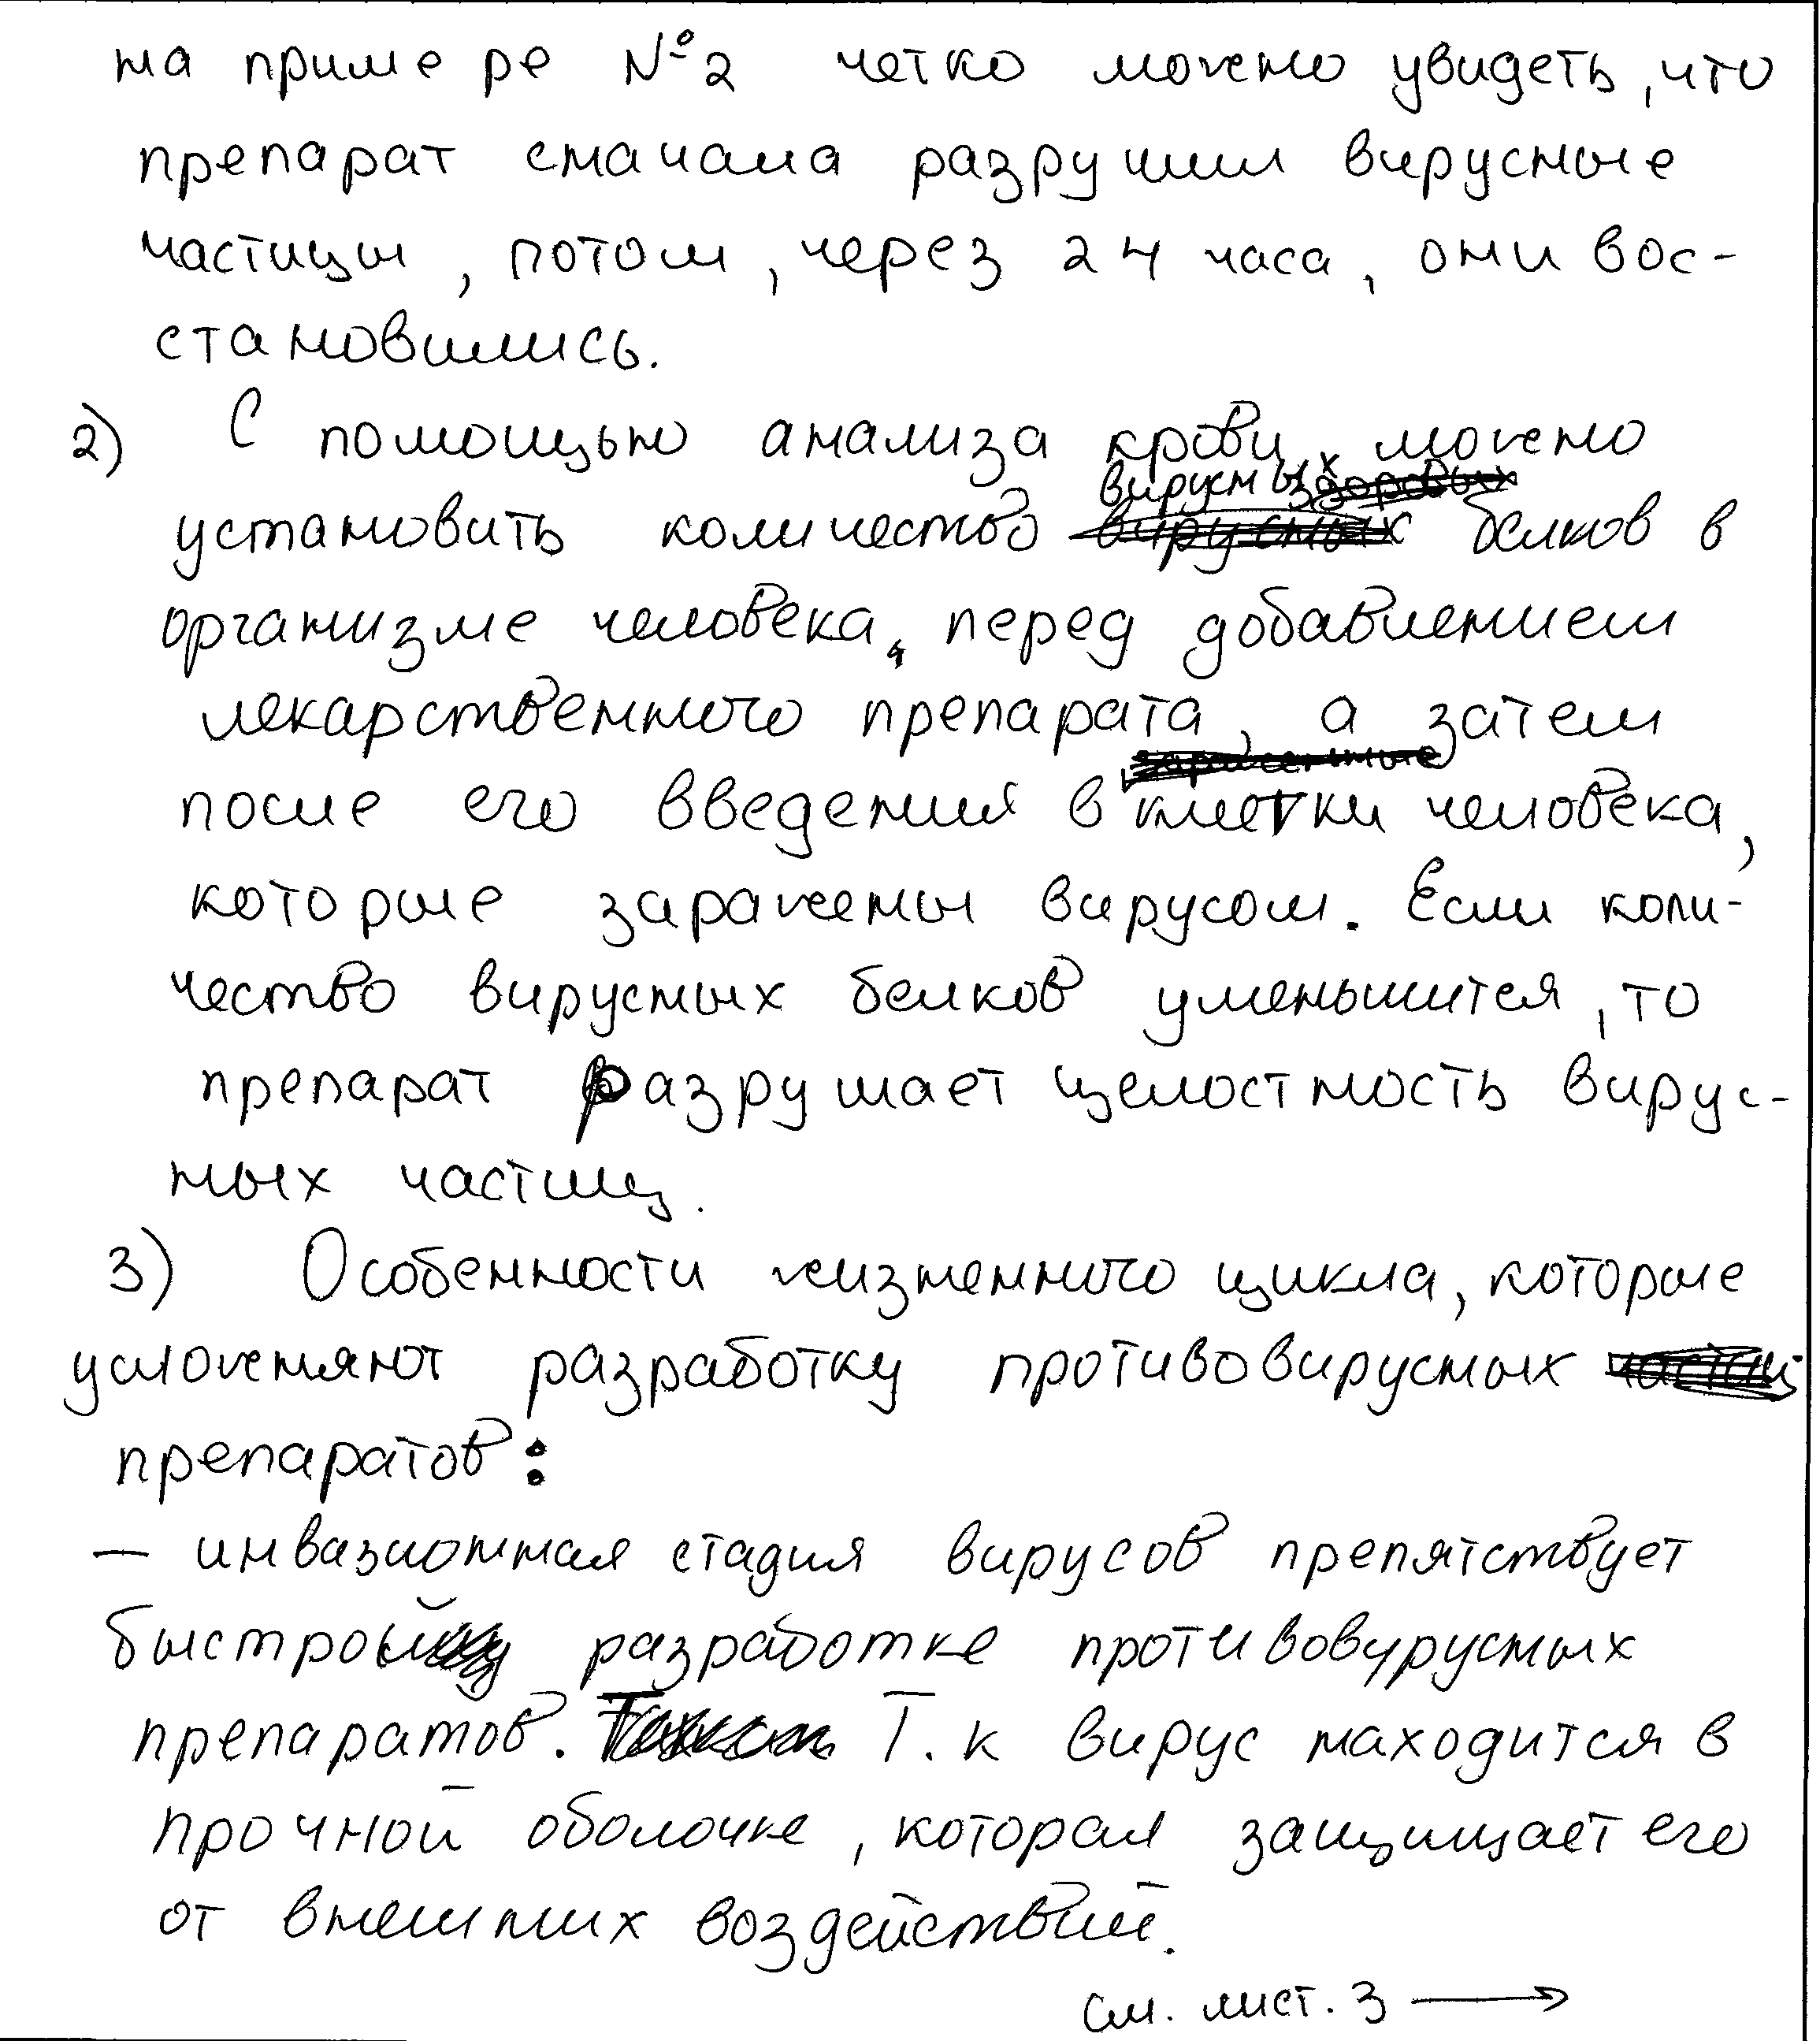 на примере №2 четко можно увидеть, что
препарат сначала разрушил вирусные
частицы, потом, через 24 часа, они вос-
становились.
2) С помощью анализа крови можно
вирусных здоровых
установить количество вирусных белков в
организме человека, перед добавлением
лекарственного препарата, а затем
зараженные
после его введения в клетки человека,
которые заражены вирусом. Если коли-
чество вирусных белков уменьшится, то
препарат разрушает целостность вирус-
ных частиц.
3) Особенности жизненного цикла, которые
усложняют разработку противовирусных частиц
препаратов:
— инвазионная стадия вирусов препятствует
быстрой разработке противовурусных
препаратов. Т.к вирус находится в
прочной оболочке, которая защищает его
от внешних воздействий.
см. лист. 3 →